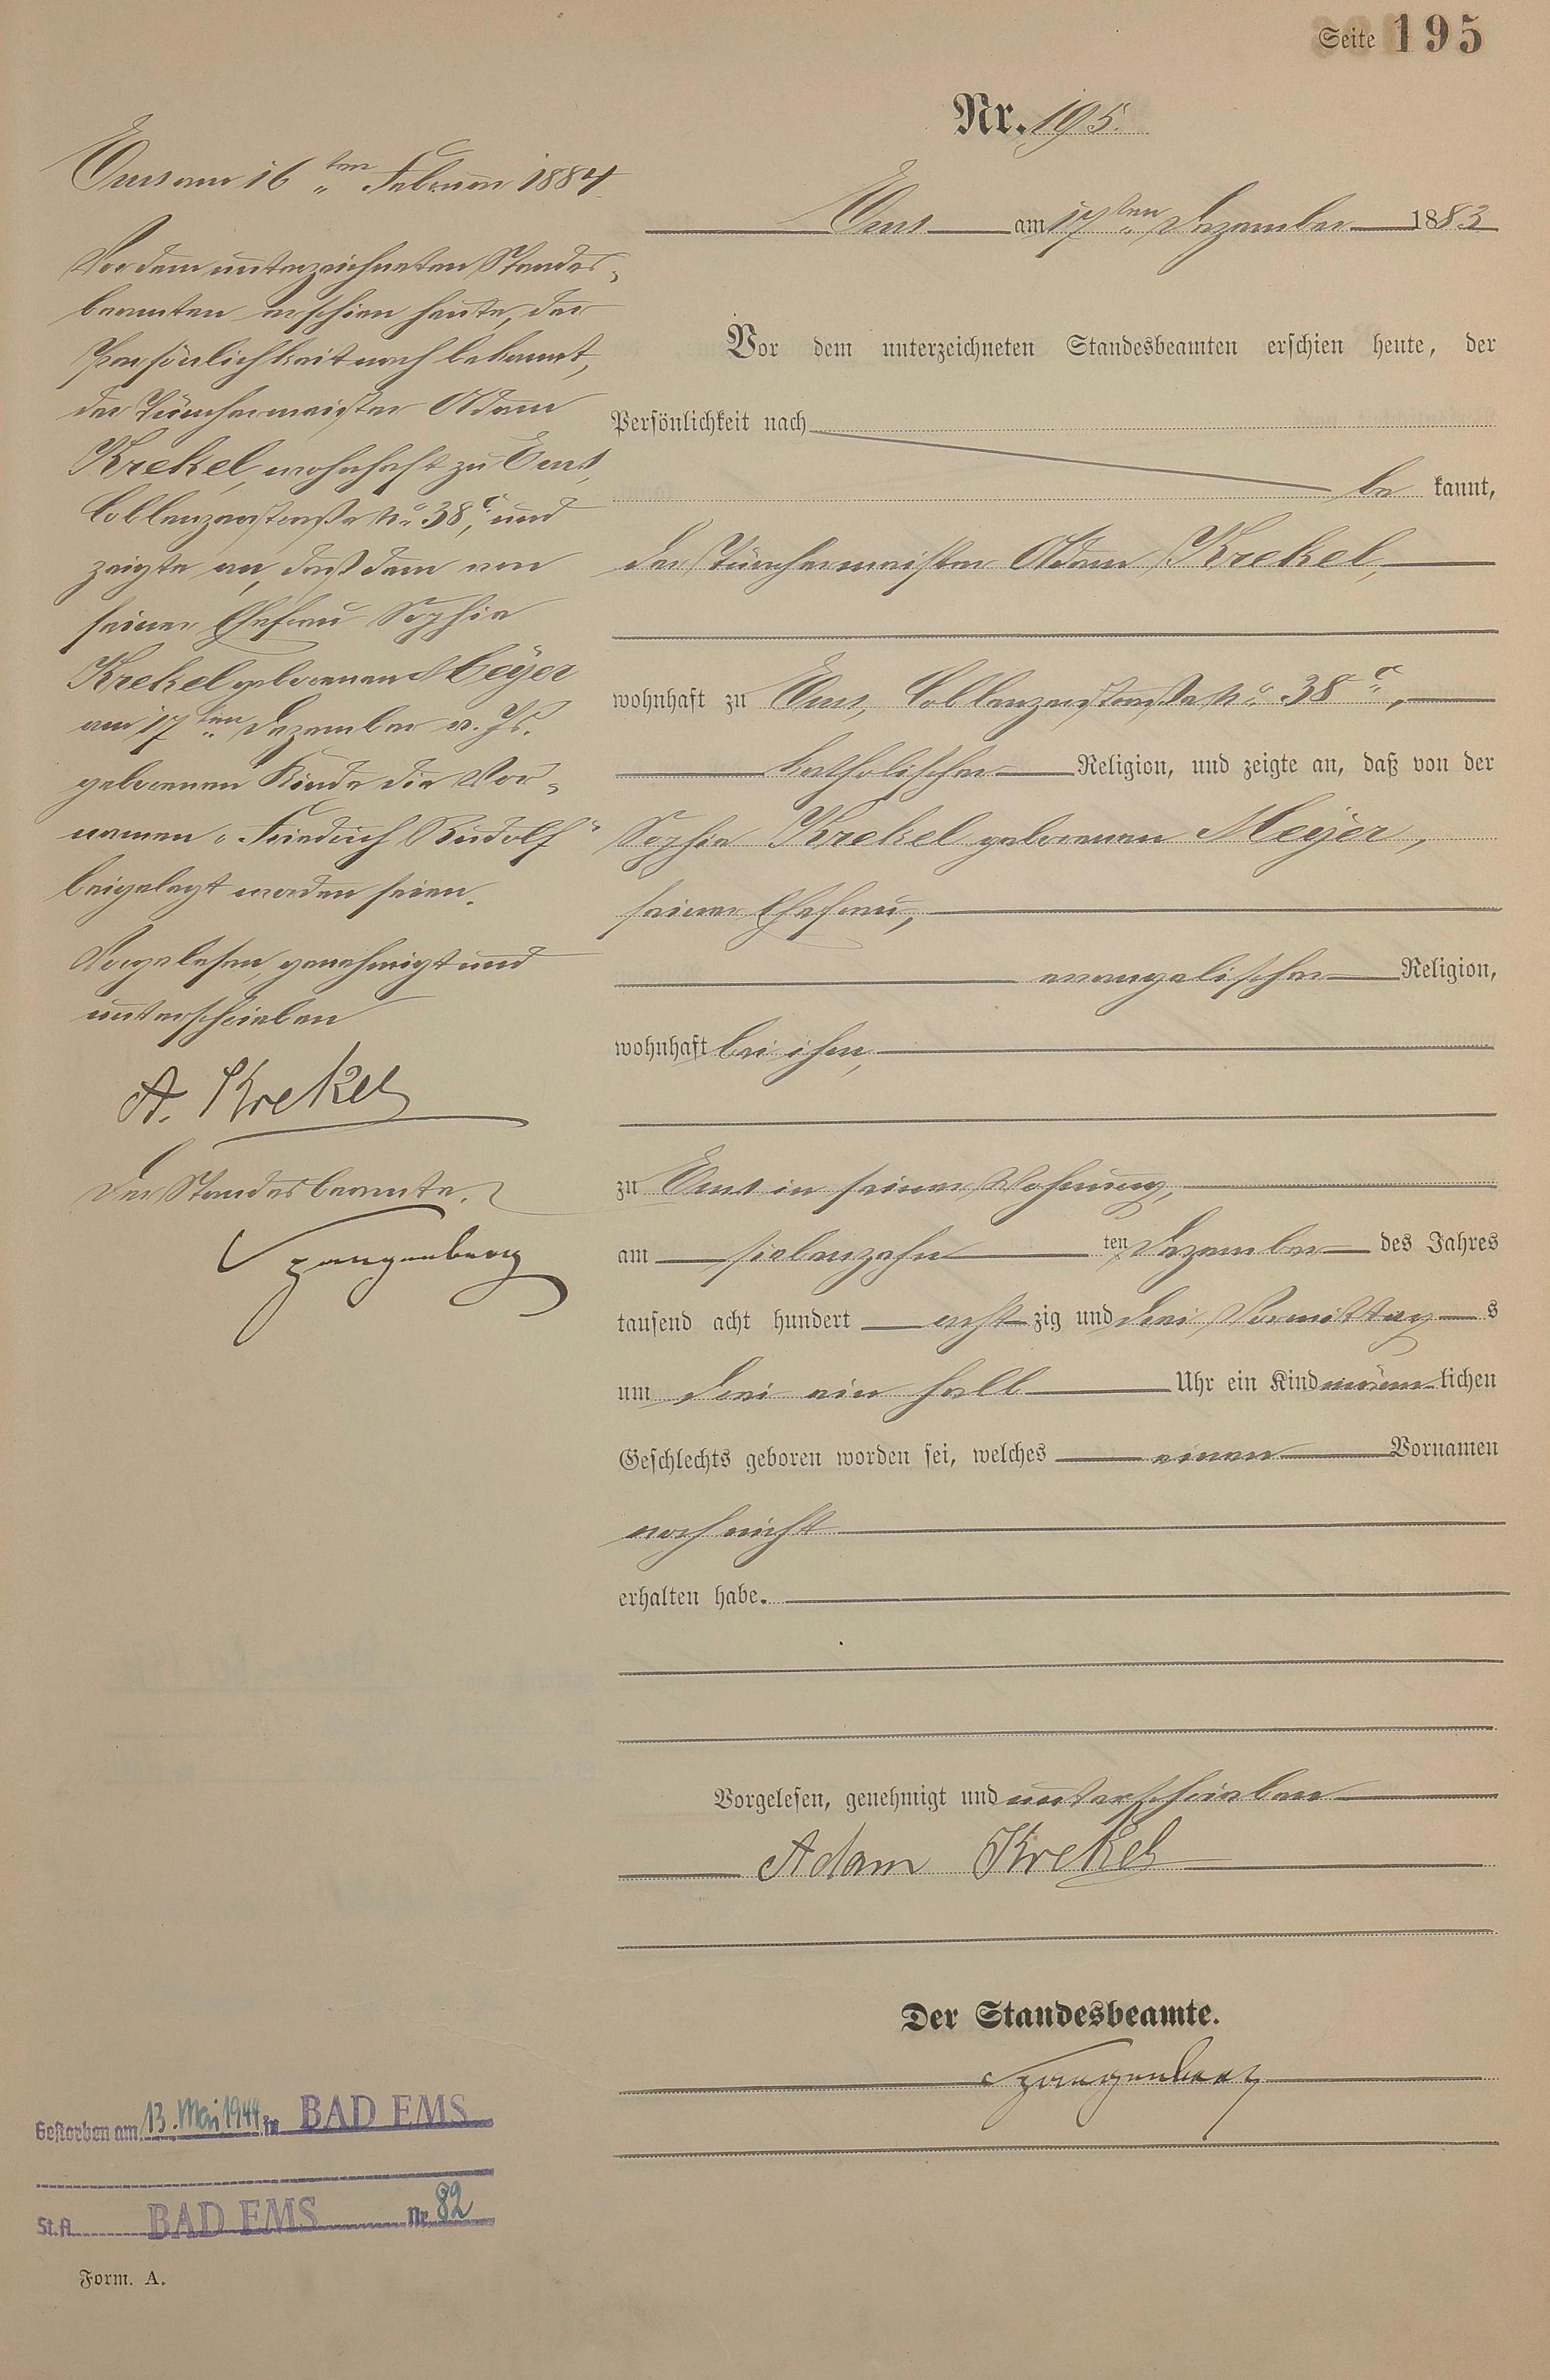 Seite 195
Nr. 195.
Ems am 17ten Dezember 1883
Vor dem unterzeichneten Standesbeamten erschien heute, der
Persönlichkeit nach
be kannt,
der Tünchermeister Adam Krekel,
wohnhaft zu Ems, Coblenzerstraße No. 38c,
katholischer Religion, und zeigte an, daß von der
Sophie Krekel geborenen Meÿer,
seiner Ehefrau,
evangelischer Religion,
wohnhaft bei ihm,
zu Ems in seiner Wohnung,
am siebenzehn ten Dezember des Jahres
tausend acht hundert acht zig und drei Vormittag s
um drei ein halb Uhr ein Kind männ lichen
Geschlechts geboren worden sei, welches einen Vornamen
noch nicht
erhalten habe.
Vorgelesen, genehmigt und unterschrieben
Adam Krekel
Der Standesbeamte.
Spangenberg
Ems am 16ten Februar 1884.
Vor dem unterzeichneten Standes-
beamten erschien heute, der
Persönlichkeit nach bekannt,
der Tünchermeister Adam
Krekel, wohnhaft zu Ems,
Coblenzerstraße No. 38c, und
zeigte an, daß dem von
seiner Ehefrau Sophie
Krekel geborenen Meÿer
am 17ten Dezember v. Js.
geborenen Kinde die Vor-
namen „Friedrich Rudolf“
beigelegt worden seien.
Vorgelesen, genehmigt und
unterschrieben
A. Krekel
Der Standesbeamte.
Spangenberg
Gestorben am 13. Mai 1944 in BAD EMS
St.A. BAD EMS Nr. 82
Form. A.